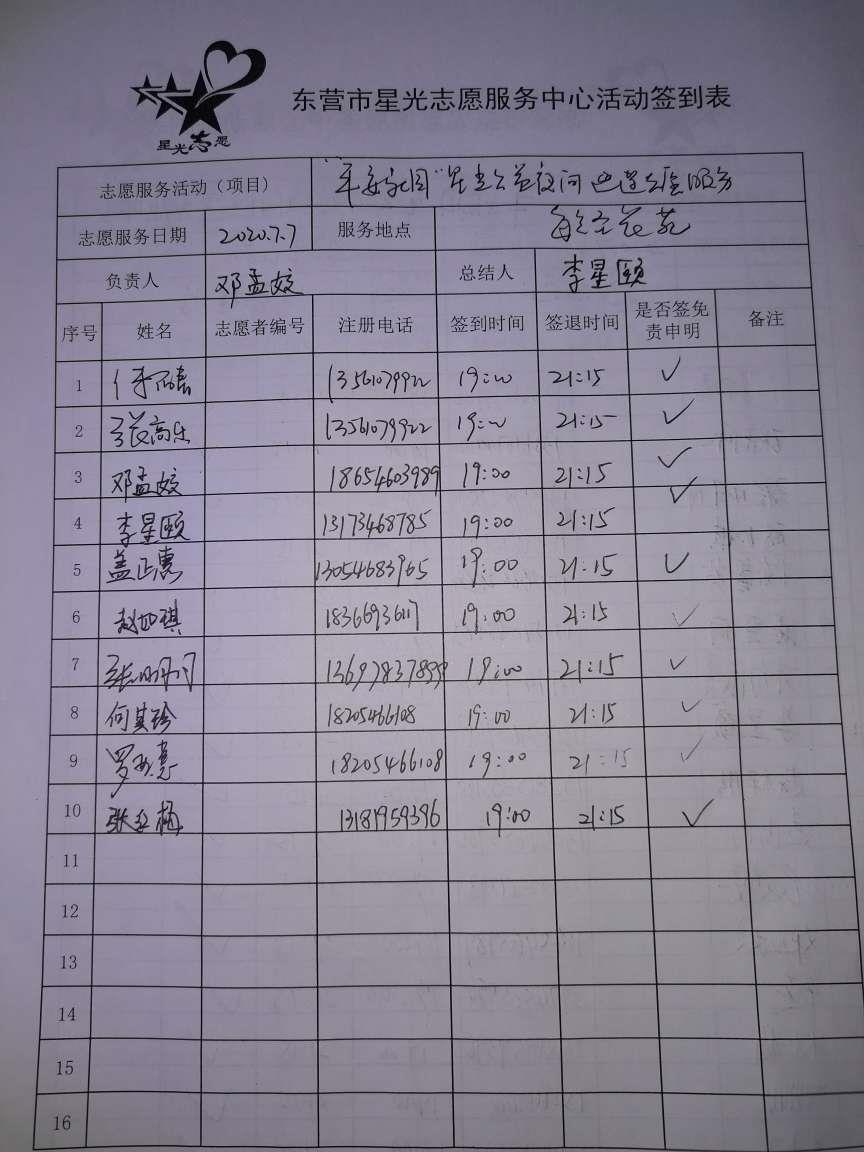 星光志愿
东营市星光志愿服务中心活动签到表
志愿服务活动（项目） "平安家园"星光公益夜间巡逻 服务
志愿服务日期 2020.7.7 服务地点
负责人 邓孟姣 总结人 李星颐
序号 姓名 志愿者编号 注册电话 签到时间 签退时间 是否签免责申明 备注
1 13561079922 19:00 21:15 ✓
2 张高乐 13561079922 19:00 21:15 ✓
3 邓孟姣 18654603989 19:00 21:15 ✓
4 李星颐 13173468785 19:00 21:15 ✓
5 盖正惠 13054683965 19:00 21:15 ✓
6 赵如琪 1836693617 19:00 21:15 ✓
7 13697837899 19:00 21:15 ✓
8 何其珍 18205466108 19:00 21:15 ✓
9 18205466108 19:00 21:15 ✓
10 张红梅 13181959396 19:00 21:15 ✓
11
12
13
14
15
16